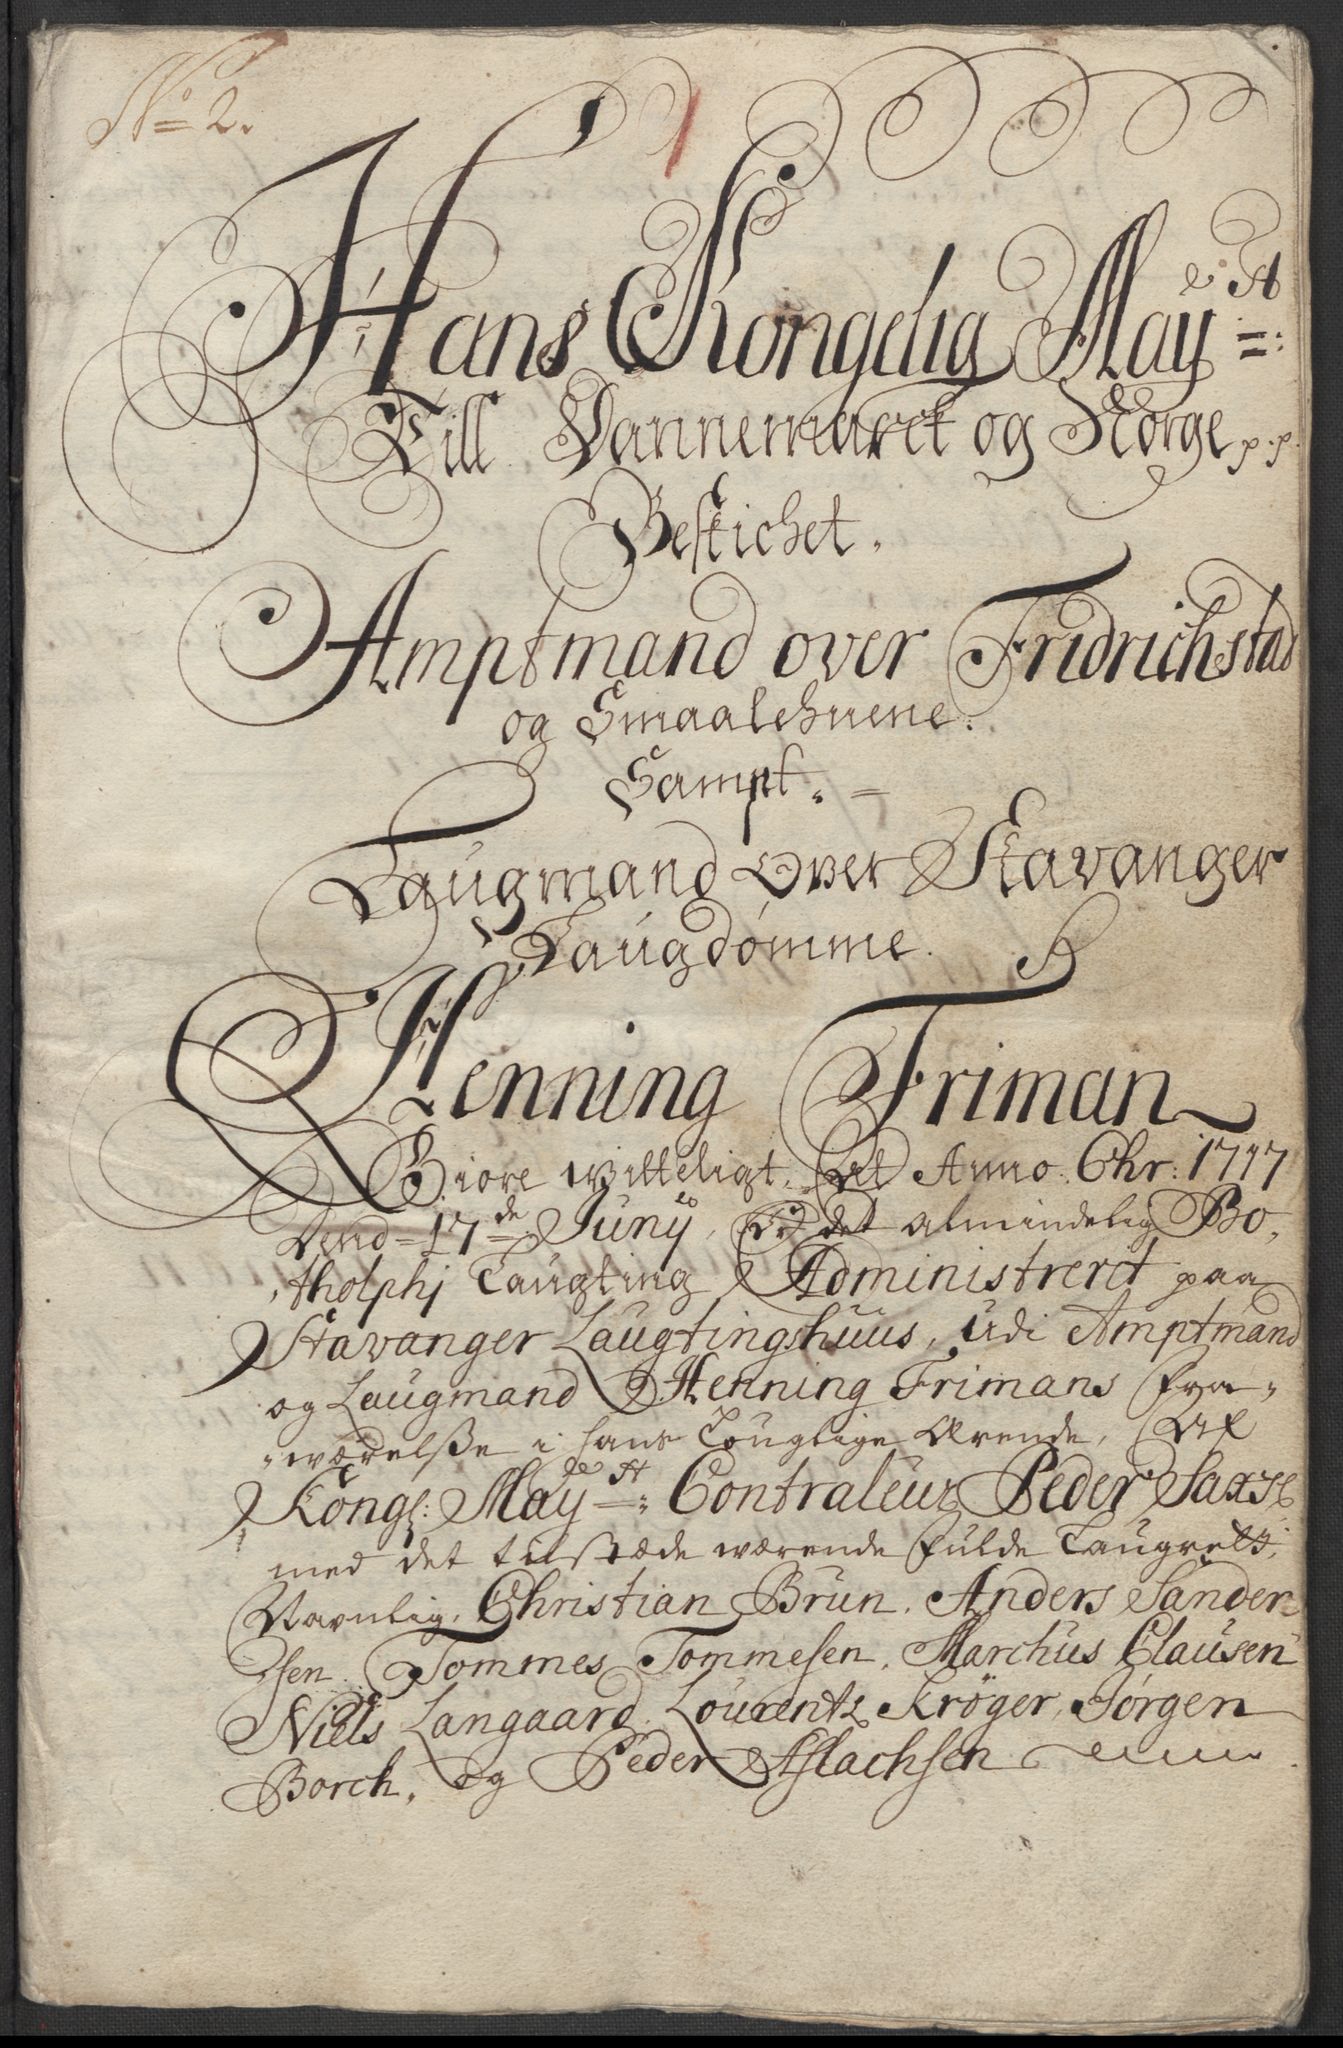 No 2.
Hans Kongelig Mayt
Till Dannemarck og Norge p.p.
Bestichet.
Amptmand over Fridrichstad
og Smaalehnene.
Sampt.
Laugmand Over Stavanger
Laugdømme.
Henning Friman
Giøre Vitteligt, At Anno Chr: 1717
Dend 17de Junij, Er det almindelig Bo,
tholphj Laugting Administreret paa
Stavanger Laugtingshuus, udi Amptmand
og Laugmand Henning Frimans fra,
,værelsse i hans Louglige Ærende, Af
Kongl: Mayts Contraleur Peder Saxse
med det tilstæde værende fulde Laugrett,
Navnlig, Christian Brun, Anders Sander
sen, Tommes Tommesen, Marchus Clausen
Niels Langaard, Lourentz Krøger, Jørgen
Borch, og Peder Aslachsen